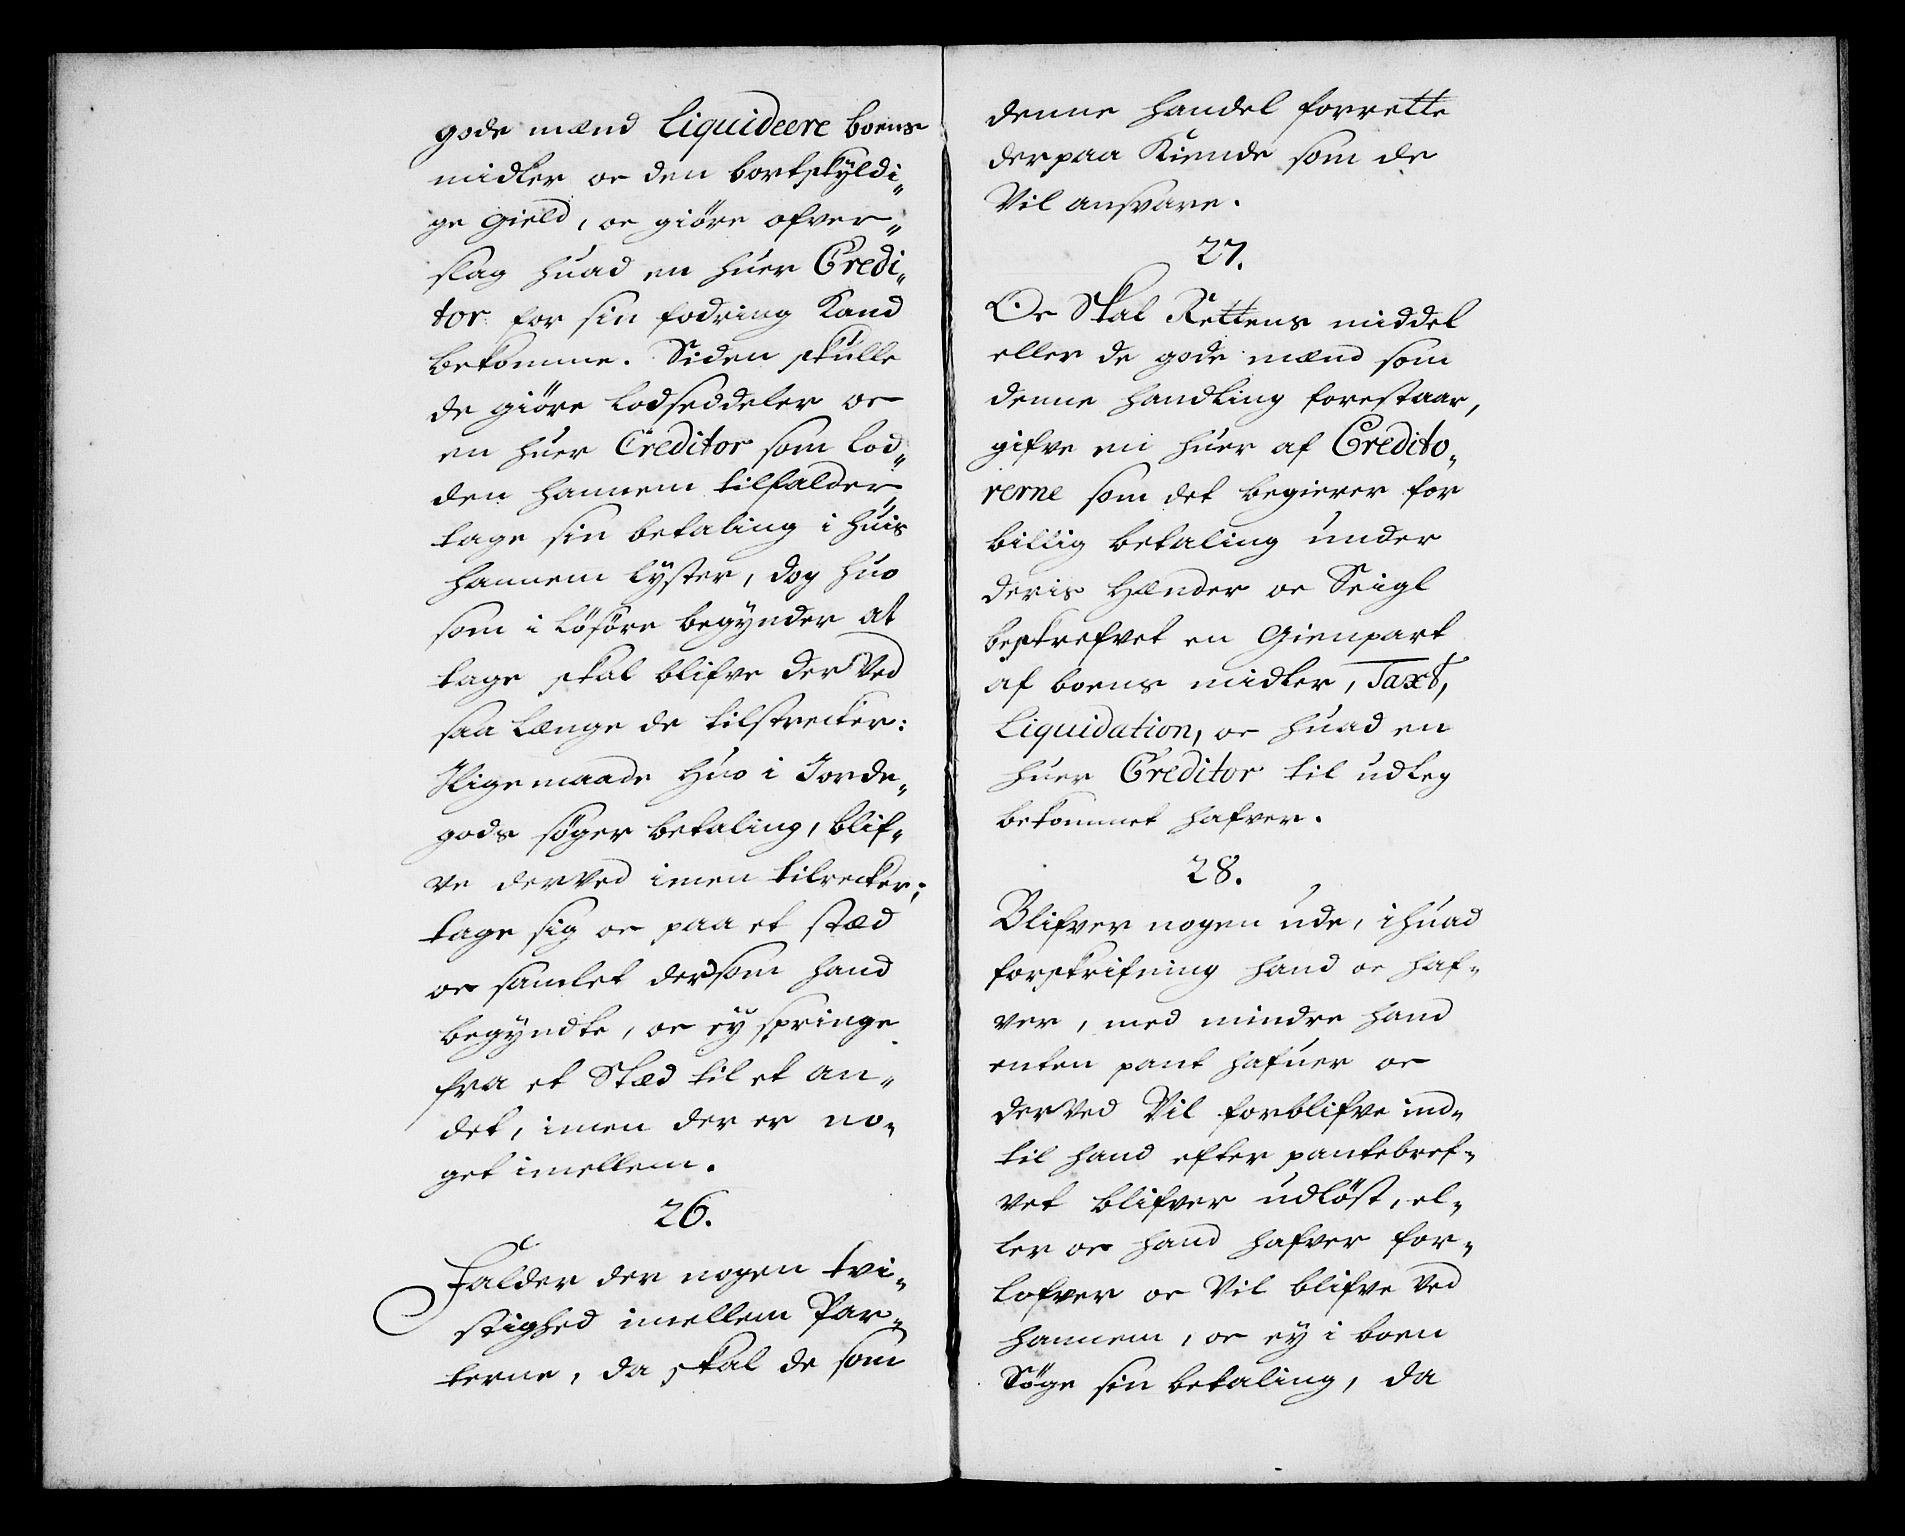 gode mænd liquideere boens
midler oc den bortskÿldi„
ge gield, oc giöre ofver„
slag huad en huer Credi„
tor for sin fodring Kand
bekomme. Siden skulle
de giöre lodseddeler oc
en huer Creditor som lod„
den hannem tilfalder,
tage sin betaling i huis
hannem lÿster, dog huo
som i löföre begÿnder at
tage skal blifve der Ved
saa længe de tilstrecker:
Jligemaade huo i Jorde„
gods söger betaling, blif„
ve derVed imen tilrecker;
tage sig oc paa et stæd
oc samlet der som hand
begÿndte, oc eÿ springe
fra et Stæd til et an„
det, imen der er no„
get imellem.
26.
Falder der nogen tvi„
stighed imellem Par„
terne, da skal de som
denne handel forrette
derpaa Kiende som de
Vil ansvare.
27.
Oc Skal Rettens middel
eller de gode mænd som
denne handling forestaar,
gifve en huer af Credito„
rerne som det begierer for
billig betaling under
deris Hænder oc Seigl
beskrefvet en Gienpart
af boens midler, Taxt,
Liquidation, oc huad en
huer Creditor til udleg
bekommet hafver.
28.
Blifver nogen ude, ihuad
forskrifning hand oc haf„
ver, med mindre hand
enten pant hafuer oc
derVed Vil forblifve ind„
til hand efter pantebref„
vet blifver udlöst, el„
ler oc hand hafver for„
lofver oc Vil blifve Ved
hannem, oc eÿ i boen
Söge sin betaling, da